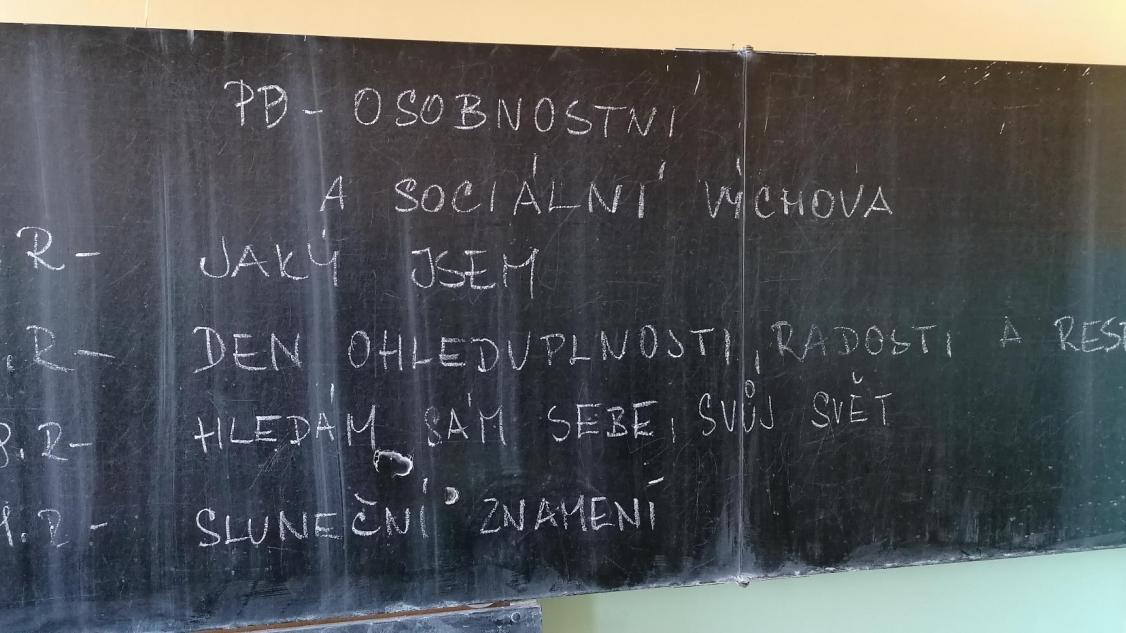 PD - OSOBNOSTNÍ
A SOCIÁLNÍ VÝCHOVA
R - JAKÝ JSEM
.R - DEN OHLEDUPLNOSTI, RADOSTI A RESP
3. R - HLEDÁM SÁM SEBE, SVŮJ SVĚT
4. R - SLUNEČNÍ ZNAMENÍ